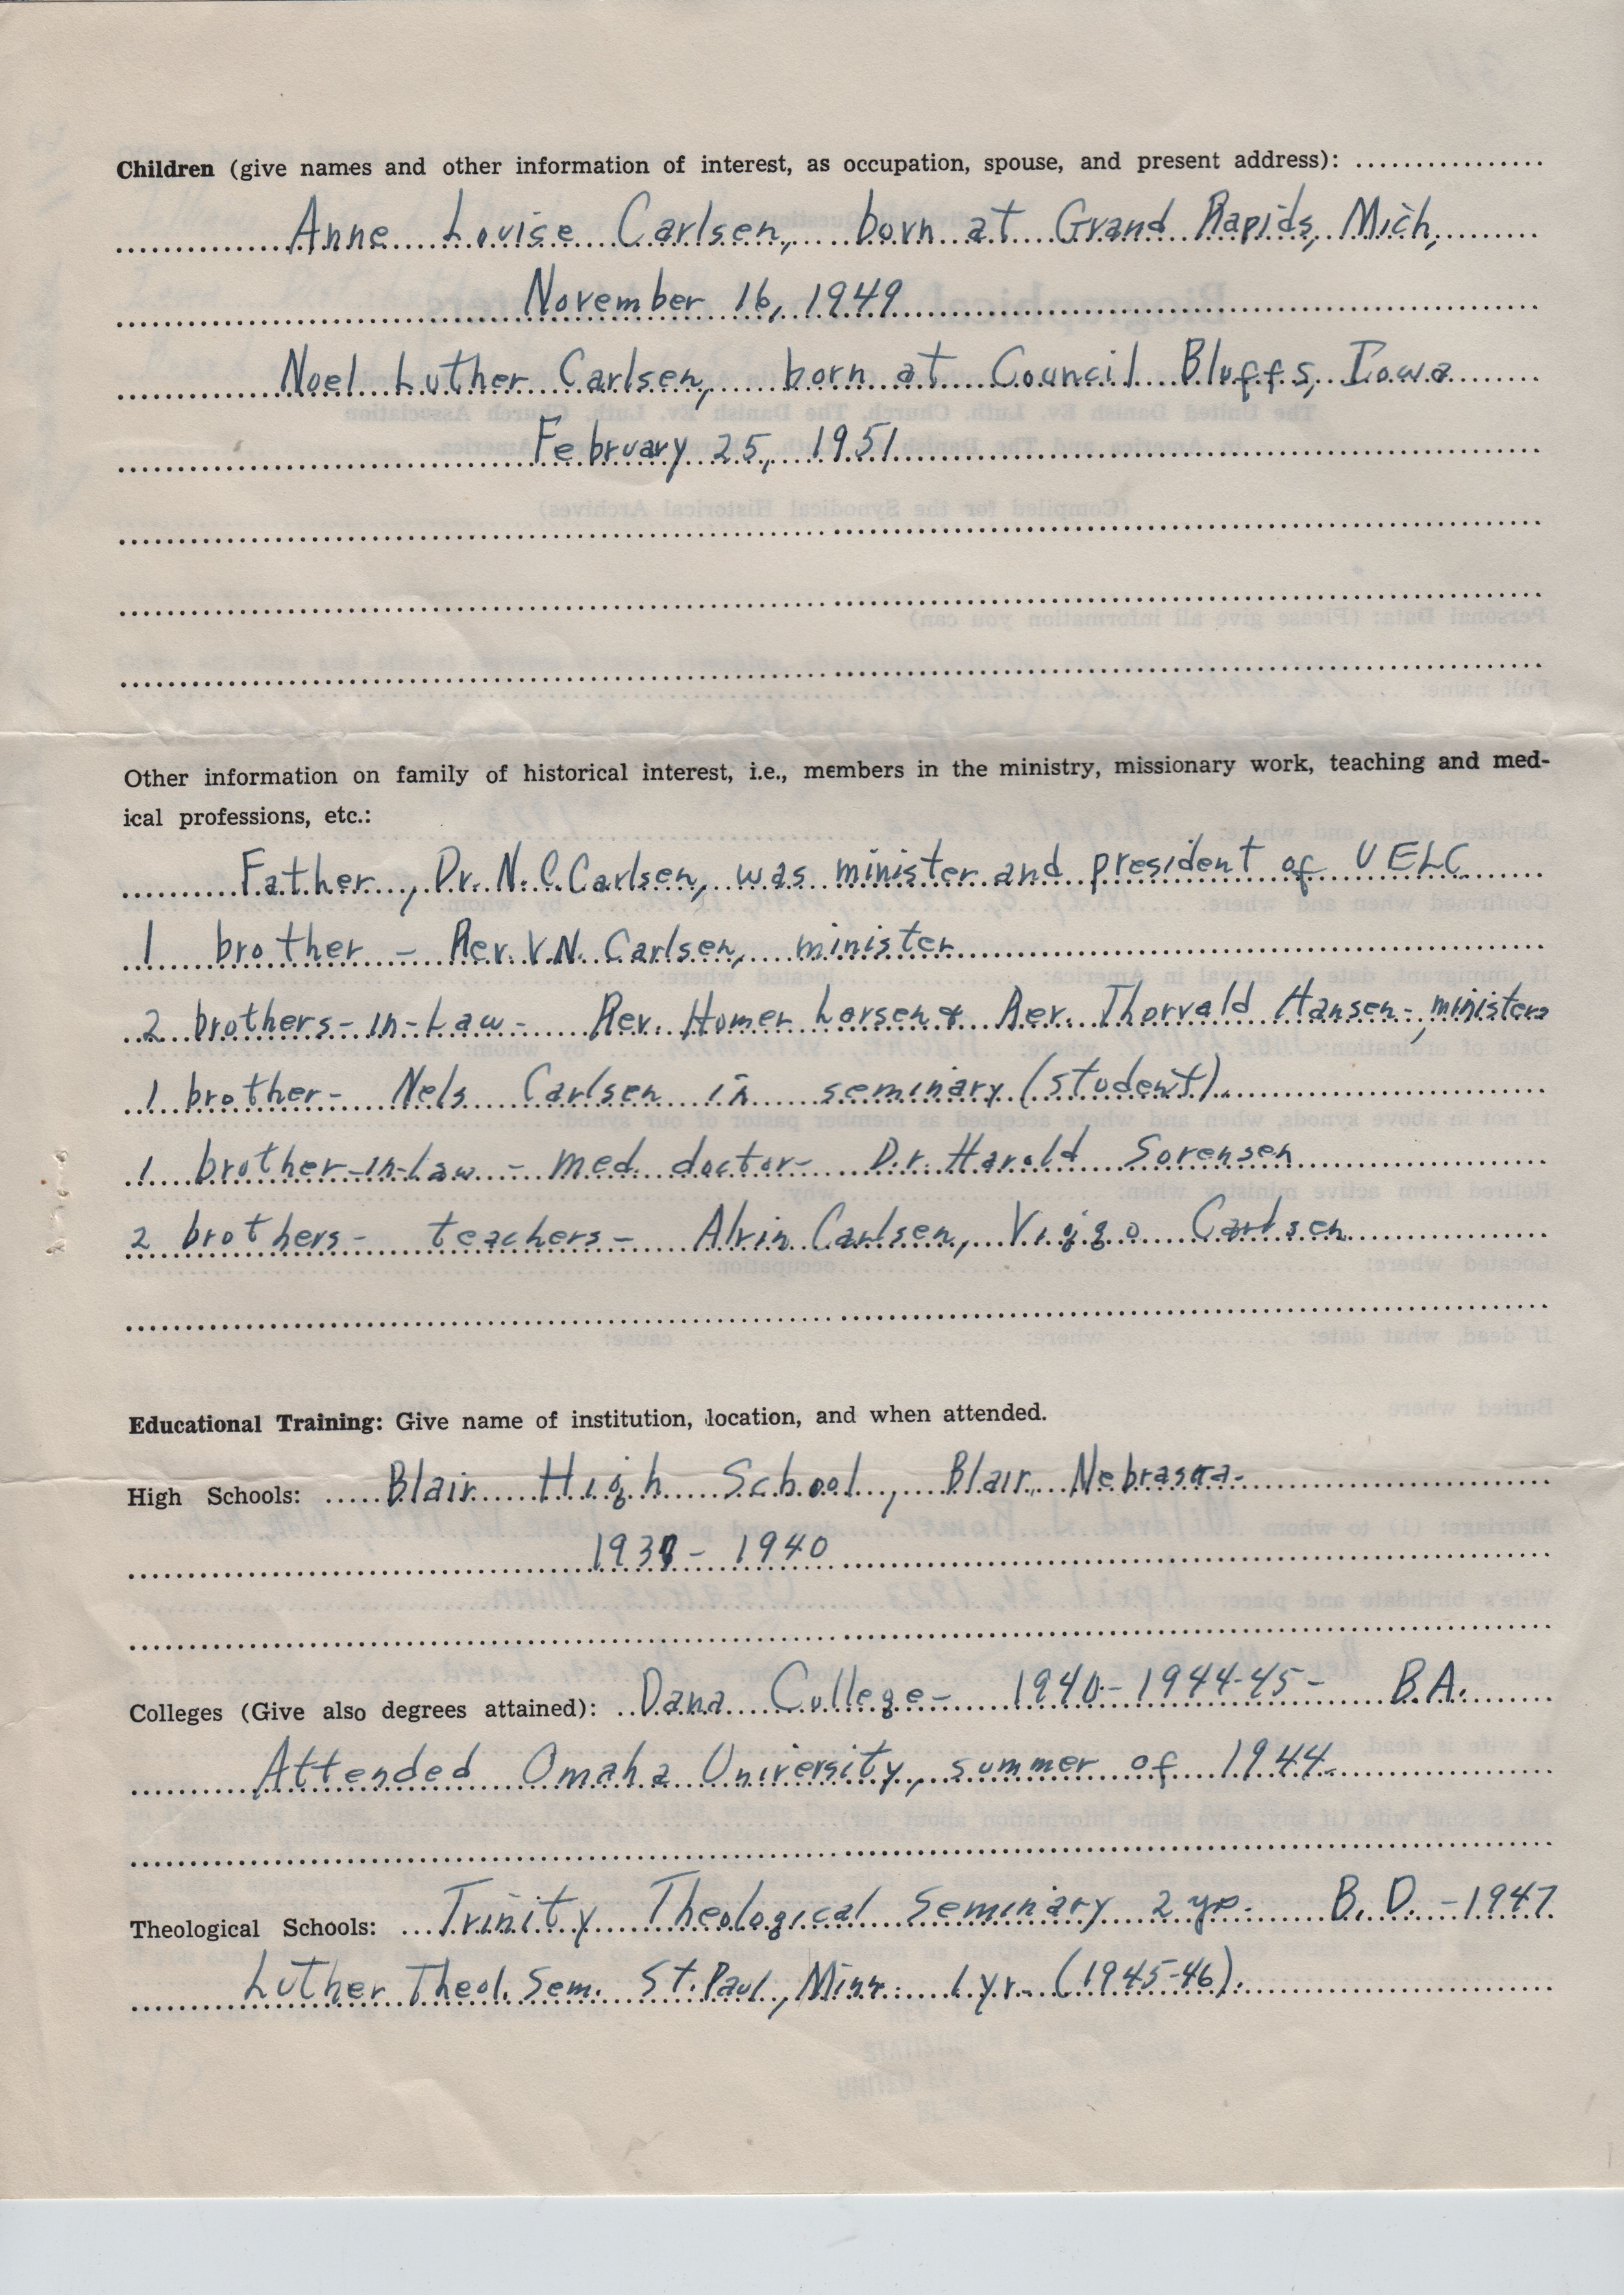 Children (give names and other information of interest, as occupation, spouse, and present address):
Anne Louise Carlsen, born at Grand Rapids, Mich,
November 16, 1949
Noel Luther Carlsen, born at Council Bluffs, Iowa
February 25, 1951
Other information on family of historical interest, i.e., members in the ministry, missionary work, teaching and med-
ical professions, etc.:
Father, Dr. N. C. Carlsen, was minister and president of UELC
1 brother - Rev. V.N. Carlsen, minister
2 brothers-in-Law - Rev. Homer Larsen & Rev. Thorvald Hansen - ministers
1 brother - Nels Carlsen in seminary (student).
1 brother-in-Law - med. doctor - Dr. Harold Sorensen
2 brothers - teachers - Alvin Carlsen, Viggo Carlsen
Educational Training: Give name of institution, location, and when attended.
High Schools: Blair High School, Blair, Nebraska.
- 1940
Colleges (Give also degrees attained): Dana College - 1940 - 1944-45 - B.A.
Attended Omaha University, summer of 1944.
Theological Schools: Trinity Theological Seminary 2 yr. B. D. - 1947
Luther Theol. Sem. St. Paul, Minn. 1 yr. (1945-46).